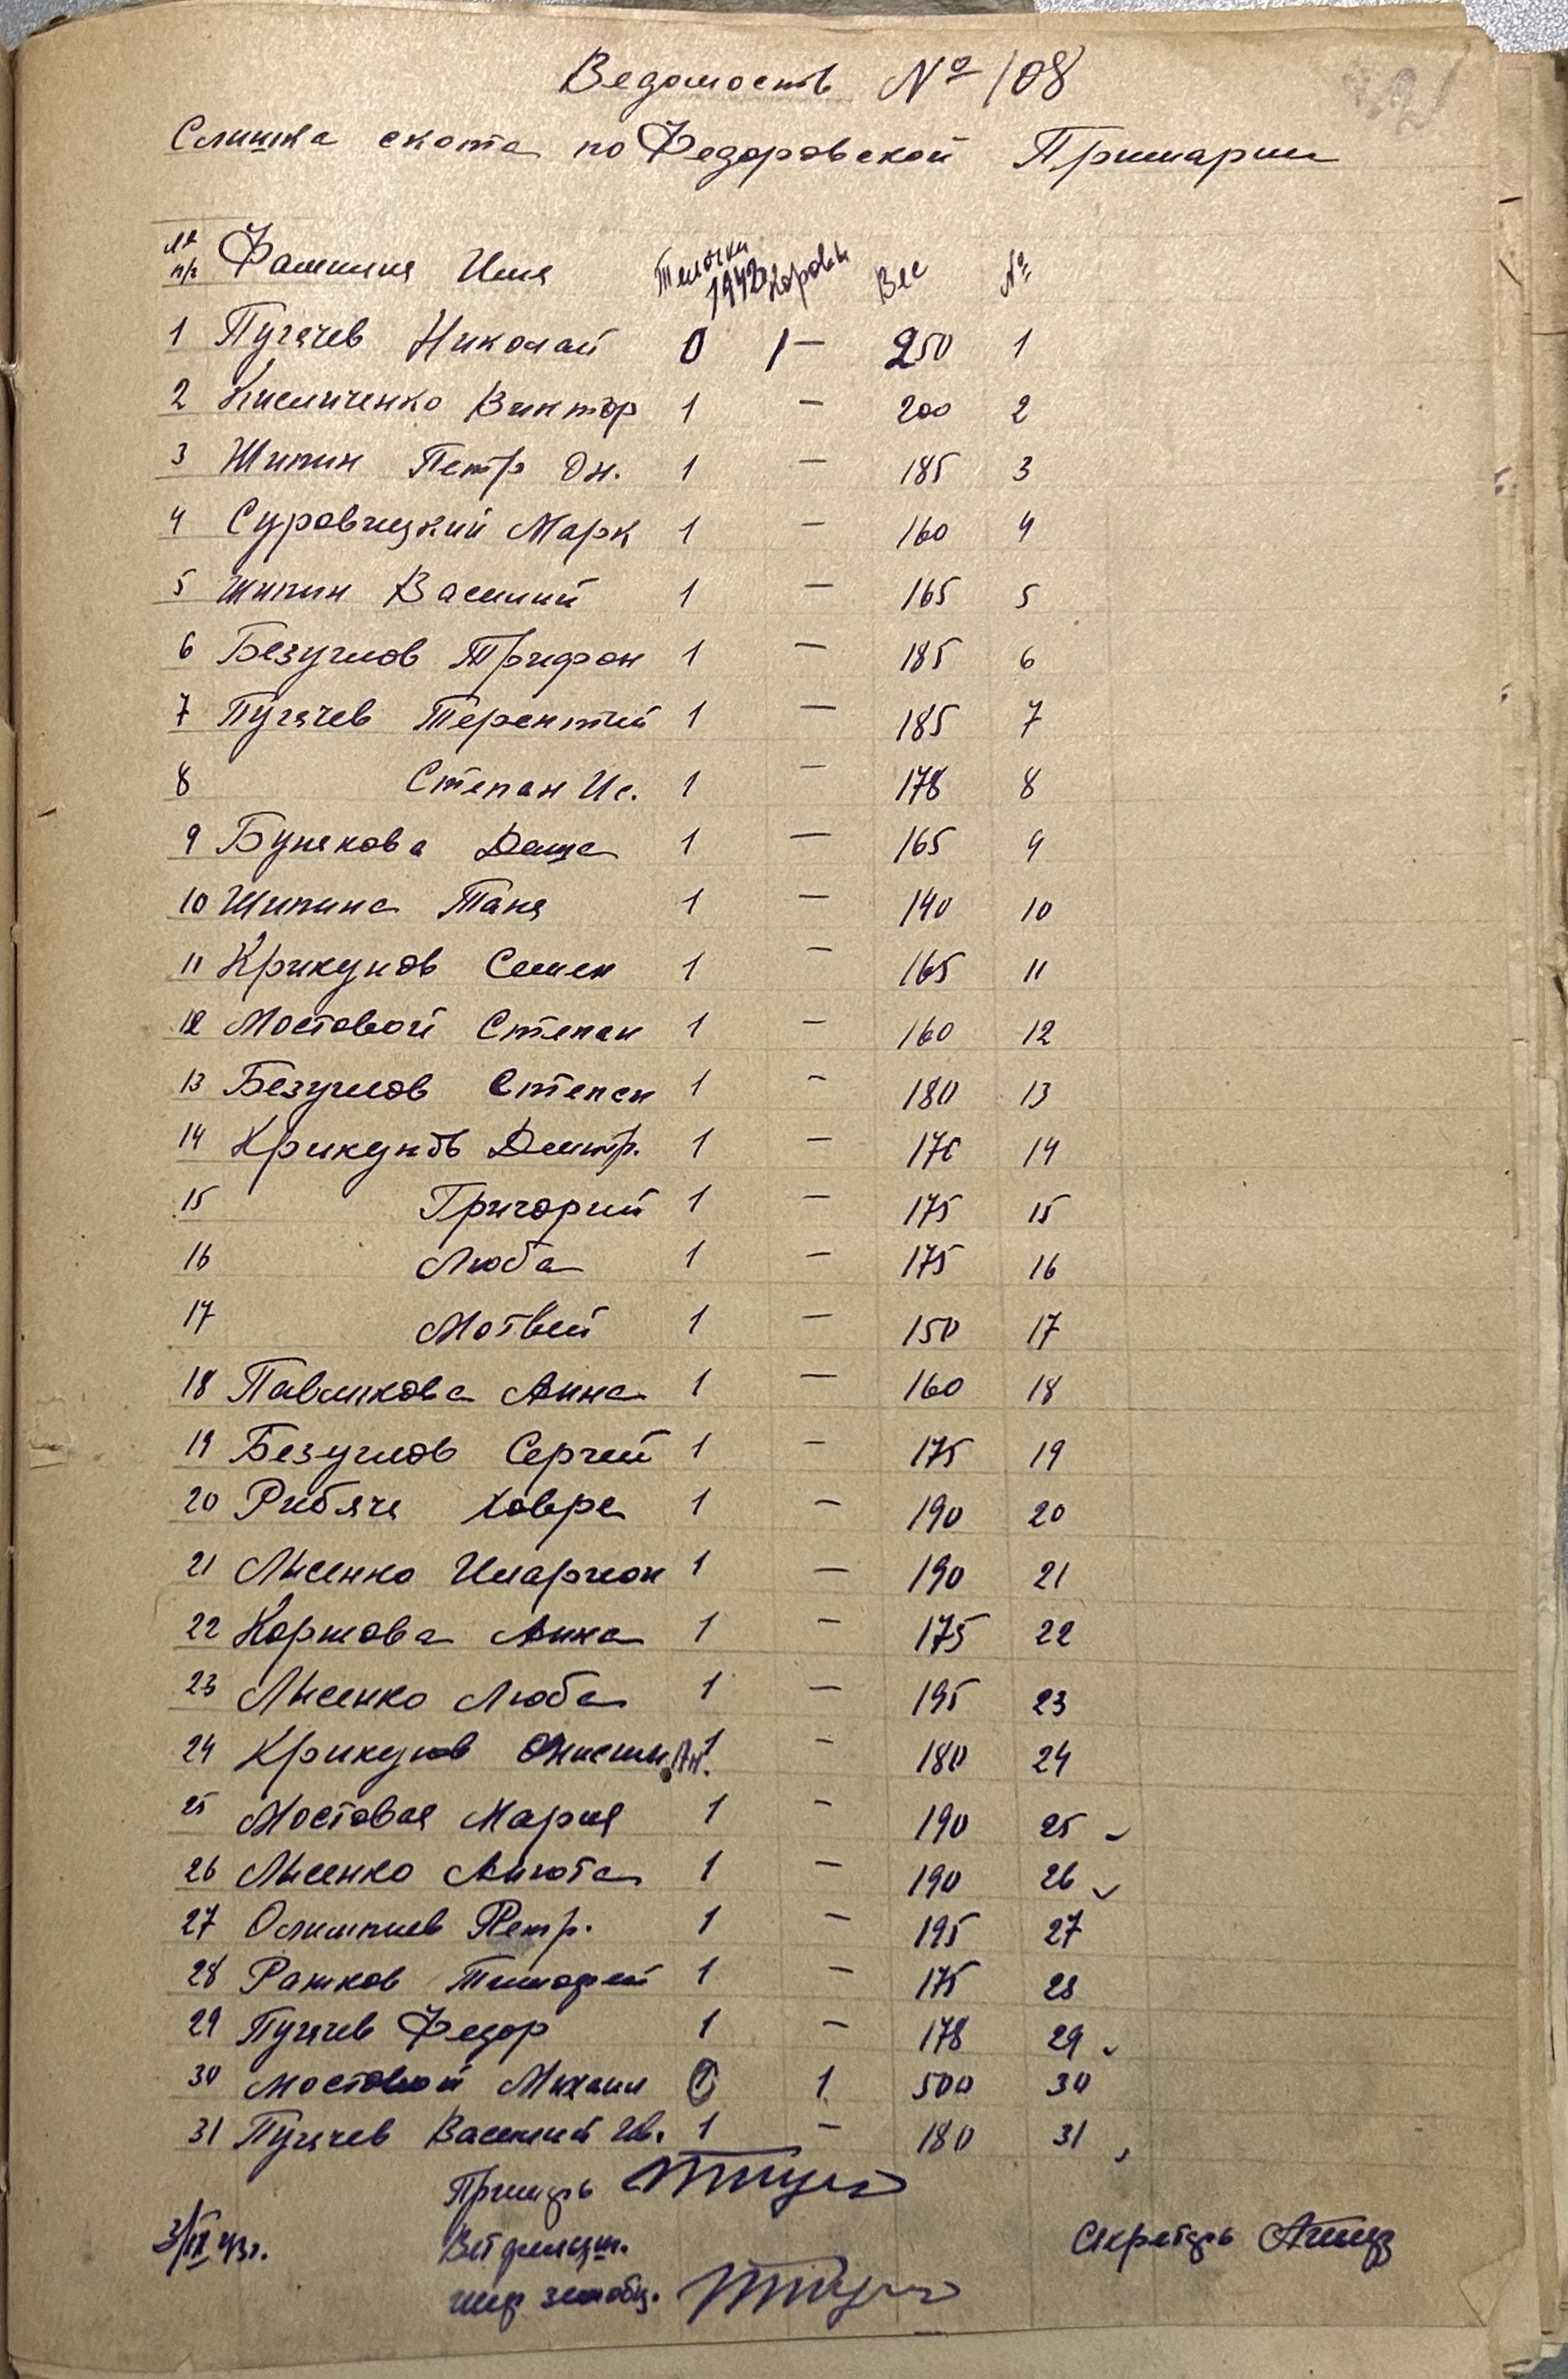 Ведомость № 108
Слишка скота по Федоровской Примарии
№ п/п Фамилия Имя Телочки 1942 Коровы Вес №
1 Пугачев Николай 0 1 — 250 1
2 Кисличенко Виктор 1 — 200 2
3 Шипин Петр Он. 1 — 185 3
4 Суровицкий Марк 1 — 160 4
5 Шипин Василий 1 — 165 5
6 Безуглов Трифон 1 — 185 6
7 Пугачев Терентий 1 — 185 7
8 Степан Ис. 1 — 178 8
9 Бунякова Даша 1 — 165 9
10 Шипина Таня 1 — 140 10
11 Крикунов Семен 1 — 165 11
12 Мостовой Степан 1 — 160 12
13 Безуглов Степан 1 — 180 13
14 Крикунов Дмитр. 1 — 176 14
15 Григорий 1 — 175 15
16 Люба 1 — 175 16
17 Мотвей 1 — 150 17
18 Павликова Анна 1 — 160 18
19 Безуглов Сергей 1 — 175 19
20 Рибяча Ховра 1 — 190 20
21 Лисенко Иларион 1 — 190 21
22 Коршова Анна 1 — 175 22
23 Лисенко Люба 1 — 195 23
24 Крикунов Онисим Ан. 1 — 180 24
25 Мостовая Мария 1 — 190 25
26 Лисенко Анюта 1 — 190 26
27 Олимпиев Петр. 1 — 195 27
28 Ратков Тимофей 1 — 175 28
29 Пугачев Федор 1 — 178 29
30 Мостовой Михаил 0 1 500 30
31 Пугачев Василий Ив. 1 — 180 31
Примарь
3/IX 43г. Ветфельдш. Секретарь